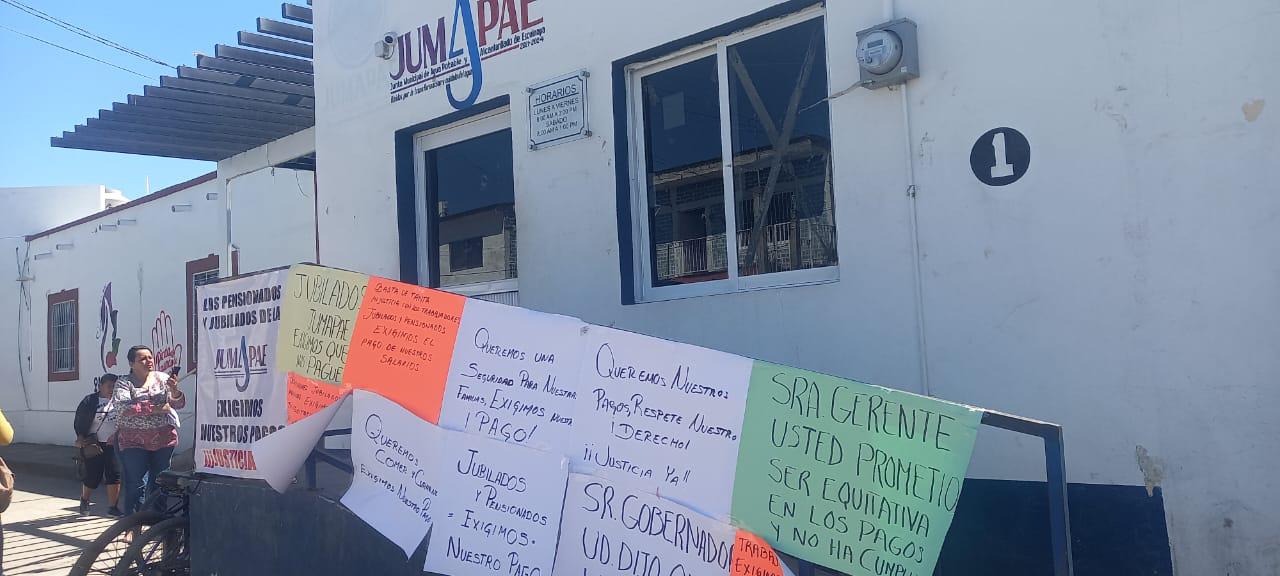 JUMAPAE
Junta Municipal de Agua Potable y Alcantarillado de Escuinapa
2021-2024
HORARIOS
LUNES A VIERNES
8:00 AM A 3:00 PM
SABADO
1
LOS PENSIONADOS
Y JUBILADOS DE LA
JUMAPAE
EXIGIMOS
NUESTROS PAGOS
¡¡¡JUSTICIA
JUBILADOS
JUMAPAE
EXIGIMOS QUE
NOS PAGUE
BASTA YA TANTA
INJUSTICIA CON LOS TRABAJADORES
JUBILADOS Y PENSIONADOS
EXIGIMOS EL
PAGO DE NUESTROS
SALARIOS
QUEREMOS UNA
SEGURIDAD PARA NUESTRAS
FAMILIAS, EXIGIMOS NUESTRO
¡PAGO!
QUEREMOS NUESTROS
PAGOS, RESPETE NUESTRO
¡DERECHO!
¡¡¡JUSTICIA YA!!
SRA. GERENTE
USTED PROMETIO
SER EQUITATIVA
EN LOS PAGOS
Y NO HA
QUEREMOS
COMER Y
EXIGIMOS NUESTRO
JUBILADOS
Y PENSIONADOS
EXIGIMOS
NUESTRO PAGO
SR. GOBERNADO
UD. DIJO
TRABA
EXIGIMO